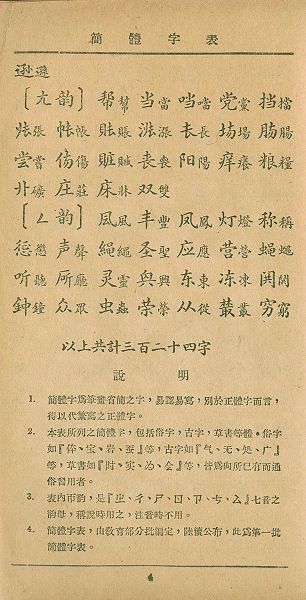 簡體字表
逊遜
〔ㄤ韵〕 帮幫 当當 噹 党黨 挡擋
张張 帐帳 账賬 涨漲 长長 场場 肠腸
尝嘗 伤傷 赃贓 丧喪 阳陽 痒癢 粮糧
卝礦 庄莊 床牀 双雙
〔ㄥ韵〕 凨風 丰豐 凤鳳 灯燈 称稱
惩懲 声聲 绳繩 圣聖 应應 营營 蝇蠅
听聽 厅廳 灵靈 兴興 东東 冻凍
鈡鐘 众眾 虫蟲 荣榮 从從 叢 穷窮
以上共計三百二十四字
說明
1. 簡體字爲筆畫省簡之字,易認易寫,別於正體字而言,
得以代繁寫之正體字。
2. 本表所列之簡體字,包括俗字,古字,草書等體。俗字
如『体、宝、岩、蚕』等,古字如『气、无、処、广』
等,草書如『时、实、为、会』等,皆爲向所已有而通
俗習用者。
3. 表內帀韵,是『ㄓ、ㄔ、ㄕ、ㄖ、ㄗ、ㄘ、ㄙ』七音之
韵母,稱說時用之,注音時不用。
4. 簡體字表,由敎育部分批編定,陸續公布,此爲第一批
簡體字表。
4